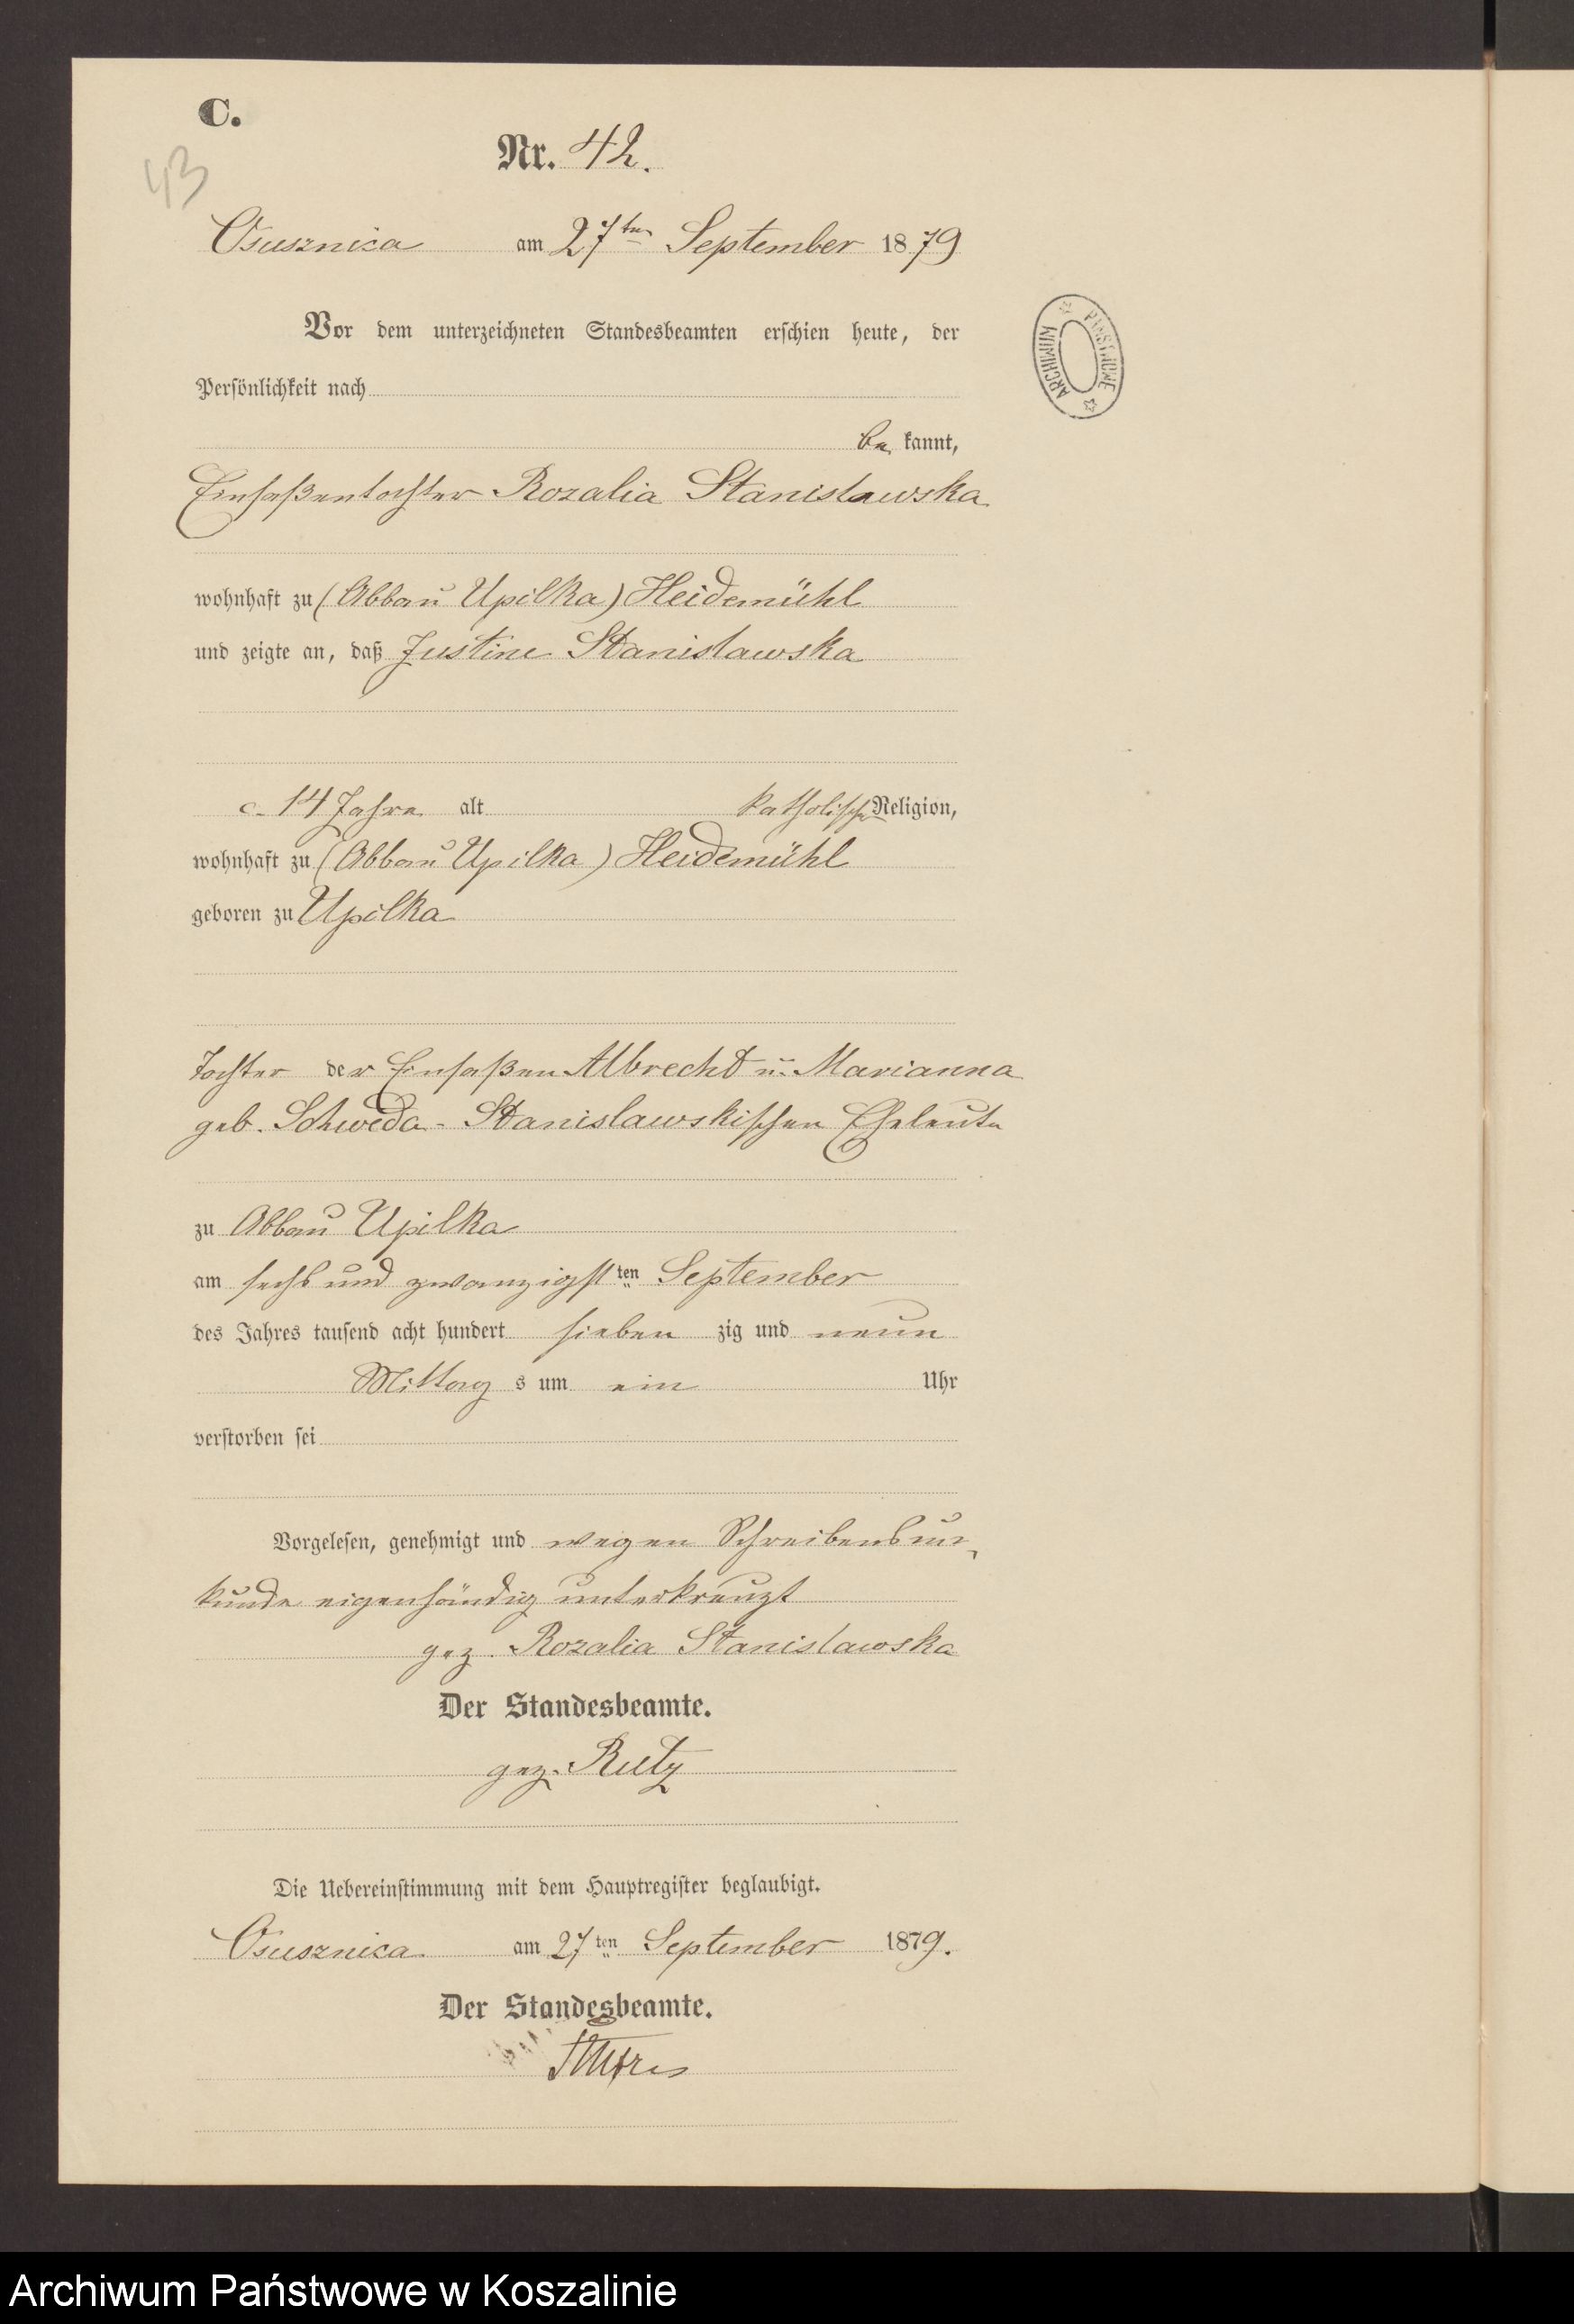 C.
43
Nr. 42.
Osusznica am 27ten September 1879
Vor dem unterzeichneten Standesbeamten erschien heute, der
Persönlichkeit nach
be kannt,
Einsaßentochter Rozalia Stanislawska
wohnhaft zu (Abbau Upilka) Heidemühl
und zeigte an, daß Justine Stanislawska
c. 14 Jahre alt katholischer Religion,
wohnhaft zu (Abbau Upilka) Heidemühl
geboren zu Upilka
Tochter der Einsaßen Albrecht u. Marianna
geb. Schweda-Stanislawskischen Eheleute
zu Abbau Upilka
am sechs und zwanzigsten September
des Jahres tausend acht hundert sieben zig und neun
Mittag s um ein Uhr
verstorben sei
Vorgelesen, genehmigt und wegen Schreibensun-
kunde eigenhändig unterkreuzt
gez. Rozalia Stanislawska
Der Standesbeamte.
gez. Rutz
Die Uebereinstimmung mit dem Hauptregister beglaubigt.
Osusznica am 27ten September 1879.
Der Standesbeamte.
ARCHIWUM PAŃSTWOWE
Archiwum Państwowe w Koszalinie